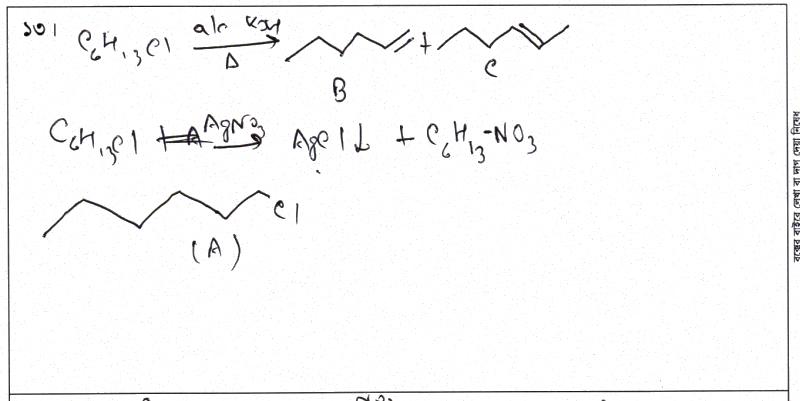 ১৩। C₆H₁₃Cl alc KOH Δ +
B C
C₆H₁₃Cl + AgNO₃ → AgCl↓ + C₆H₁₃-NO₃
Cl
(A)
বক্সের বাইরে লেখা বা দাগ দেয়া নিষেধ